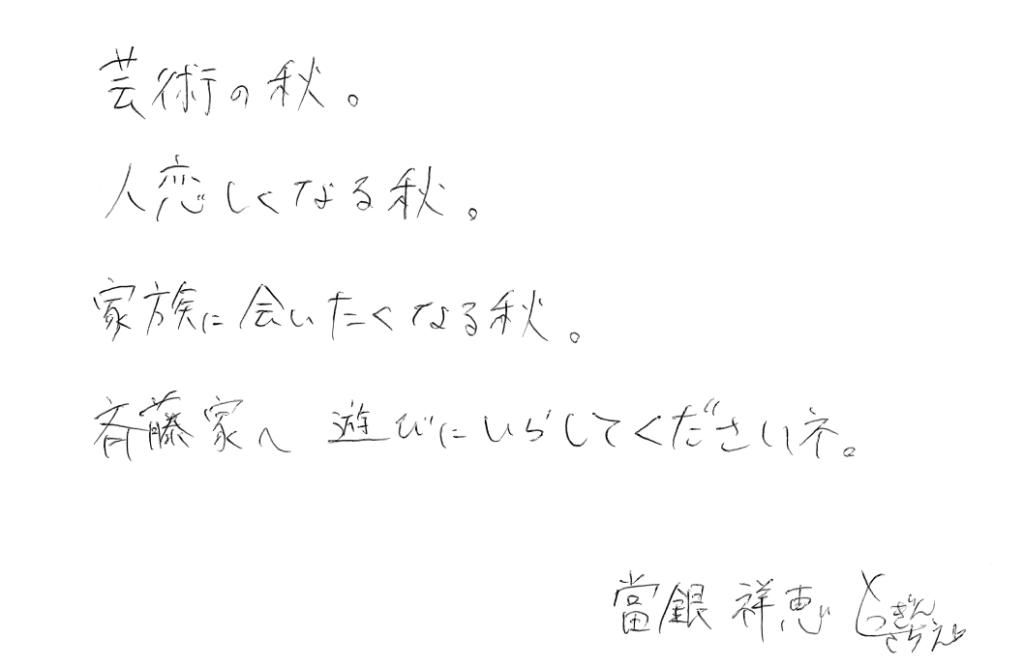 芸術の秋。
人恋しくなる秋。
家族に会いたくなる秋。
斉藤家へ 遊びにいらしてくださいネ。
當銀 祥恵 とうぎん
さちえ